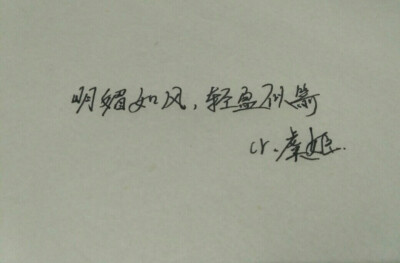 明媚如风，轻盈似箭
cr.虞姬.